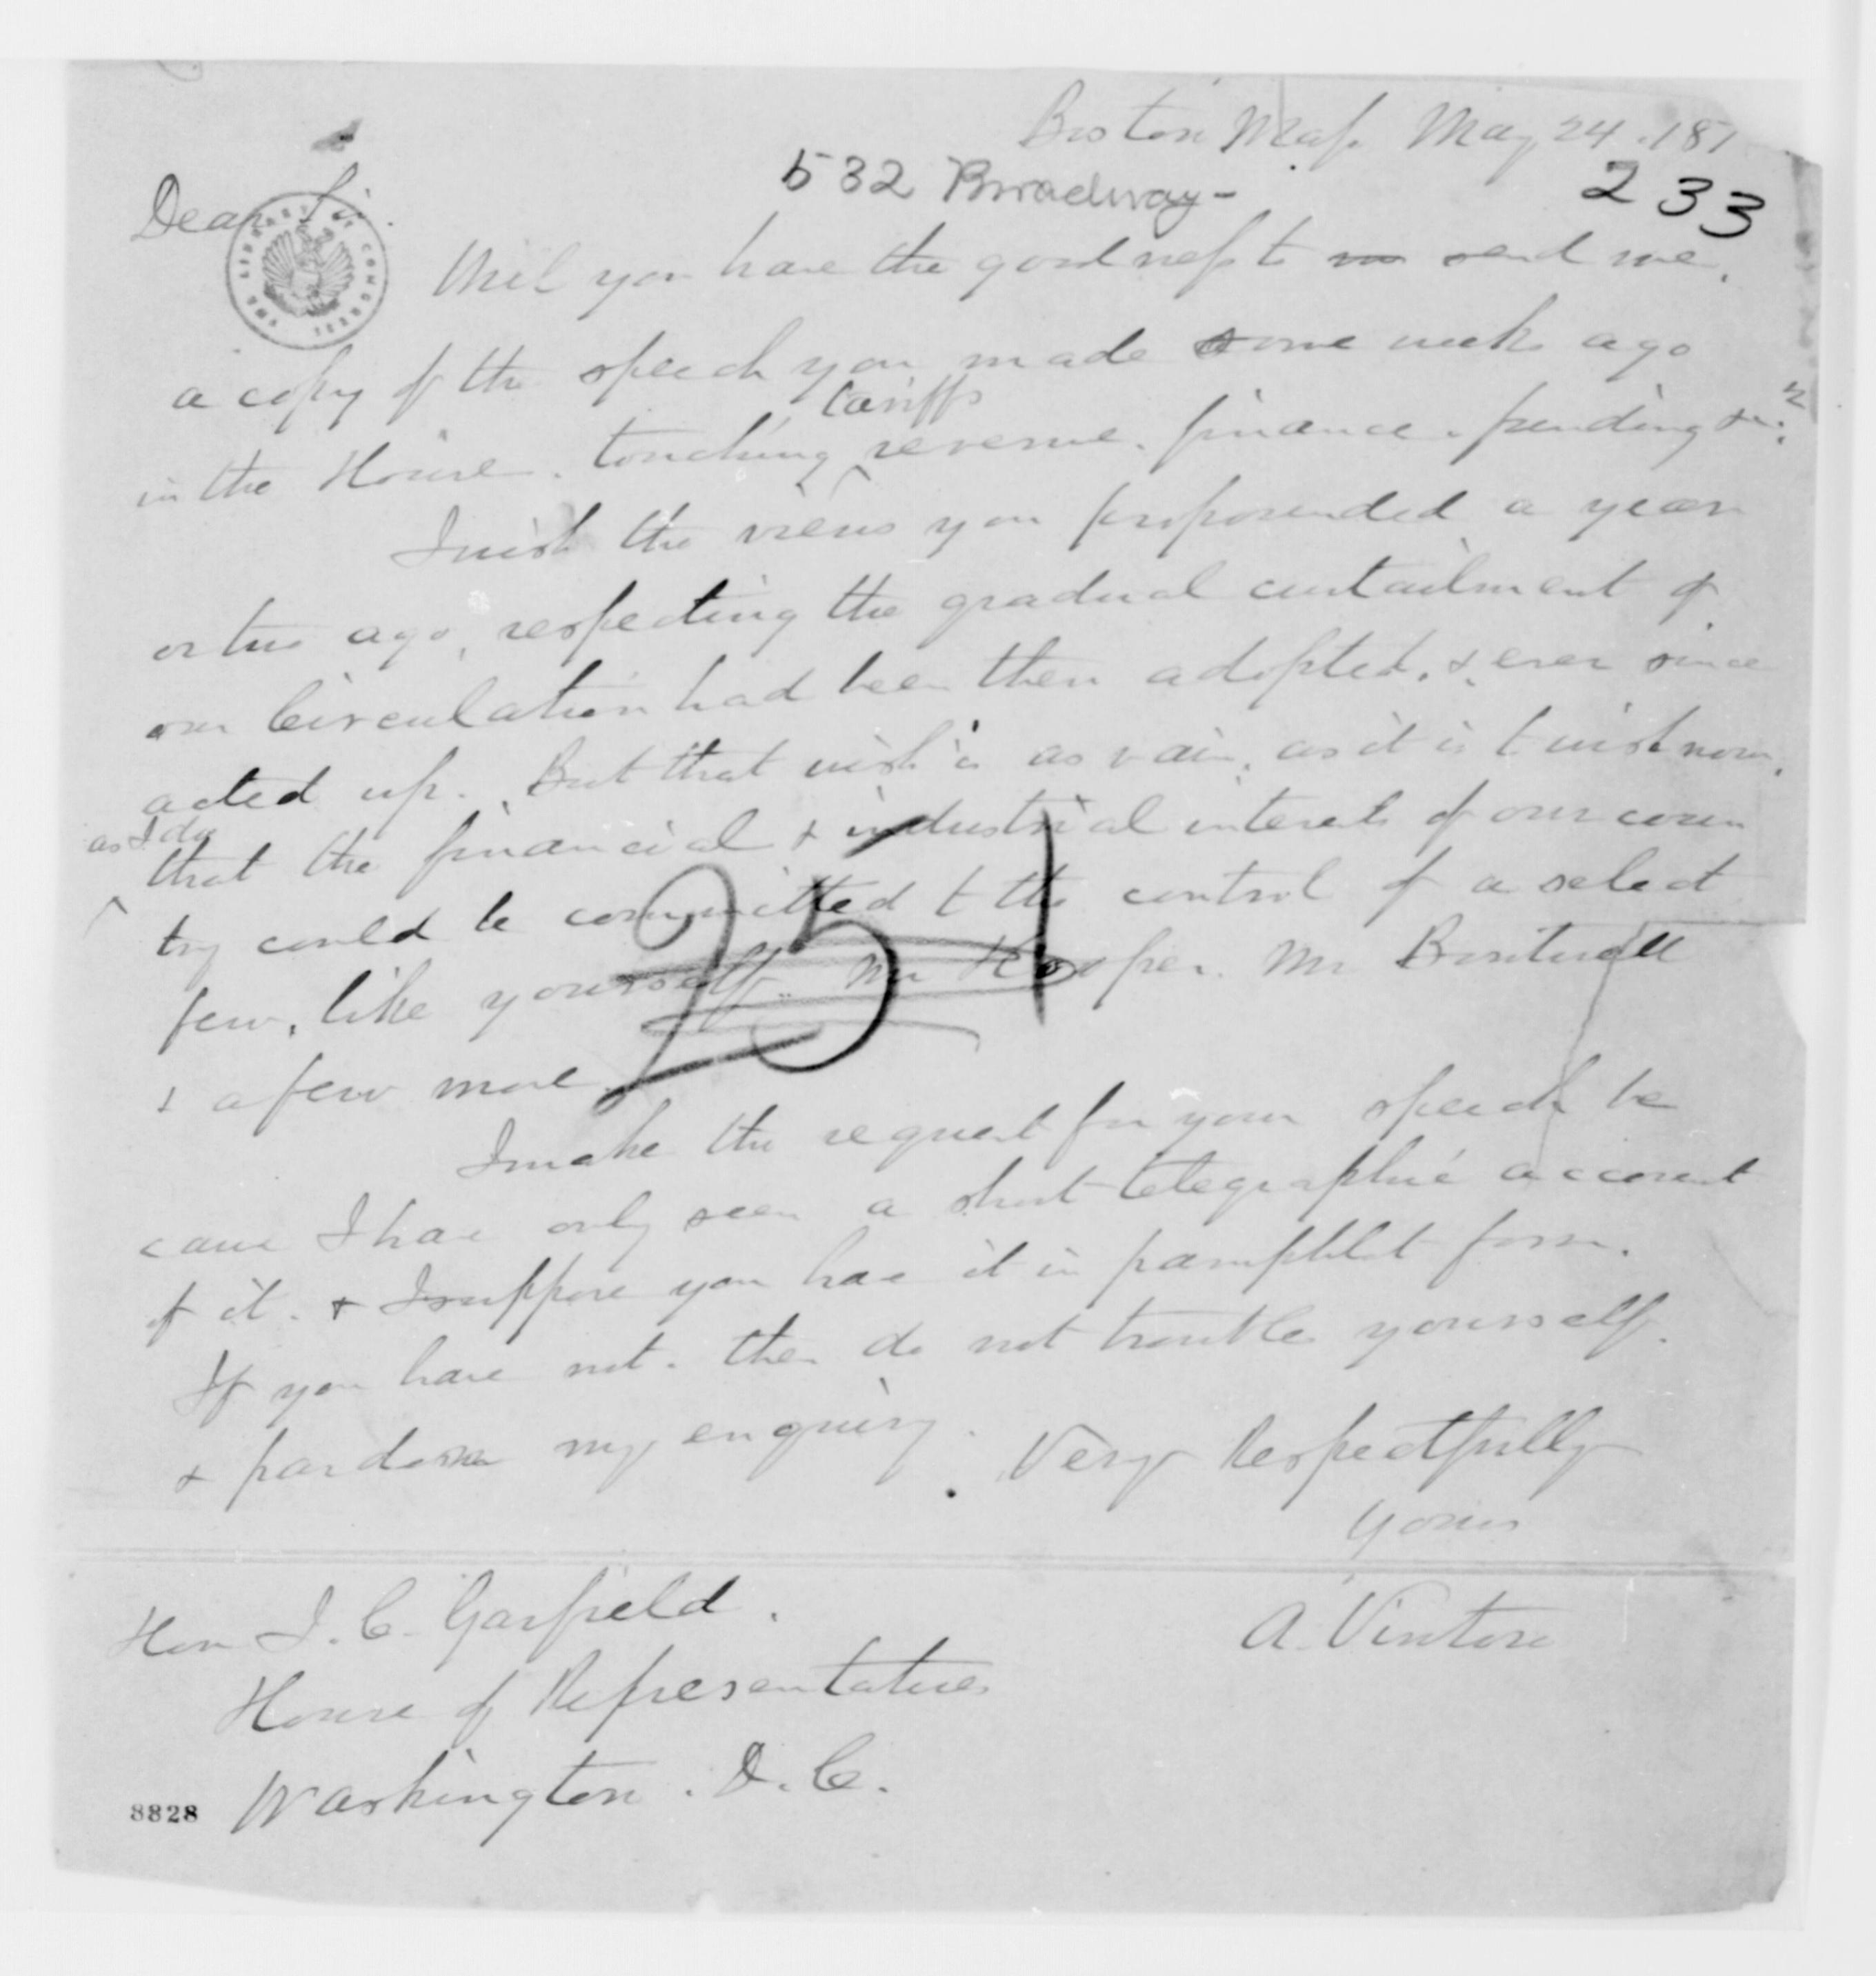 Boston Mass May 24. 187
532 Broadway -
233
Dear Sir.
THE LIBRARY OF CONGRESS
Will you have the goodness to send me,
a copy of the speech you made some weeks ago
tariffs
in the House. touching revenue. finance. funding &c.
I wish the views you propounded a year
or two ago, respecting the gradual curtailment of
our Circulation had been then adopted, & ever since
acted up. But that wish is as vain, as it is to wish now,
as I do
that the financial & industrial interests of our coun
try could be committed to the control of a select
few, like yourself. Mr Hooper. Mr Boutwell
& a few more.
251
I make the request for your speech be
cause I have only seen a short telegraphic account
of it. & I suppose you have it in pamphlet form.
If you have not. then do not trouble yourself.
& pardon my enquiry.
Very Respectfully
Yours
A. Vinton
Hon J. C. Garfield.
House of Representatives
Washington. D. C.
8828